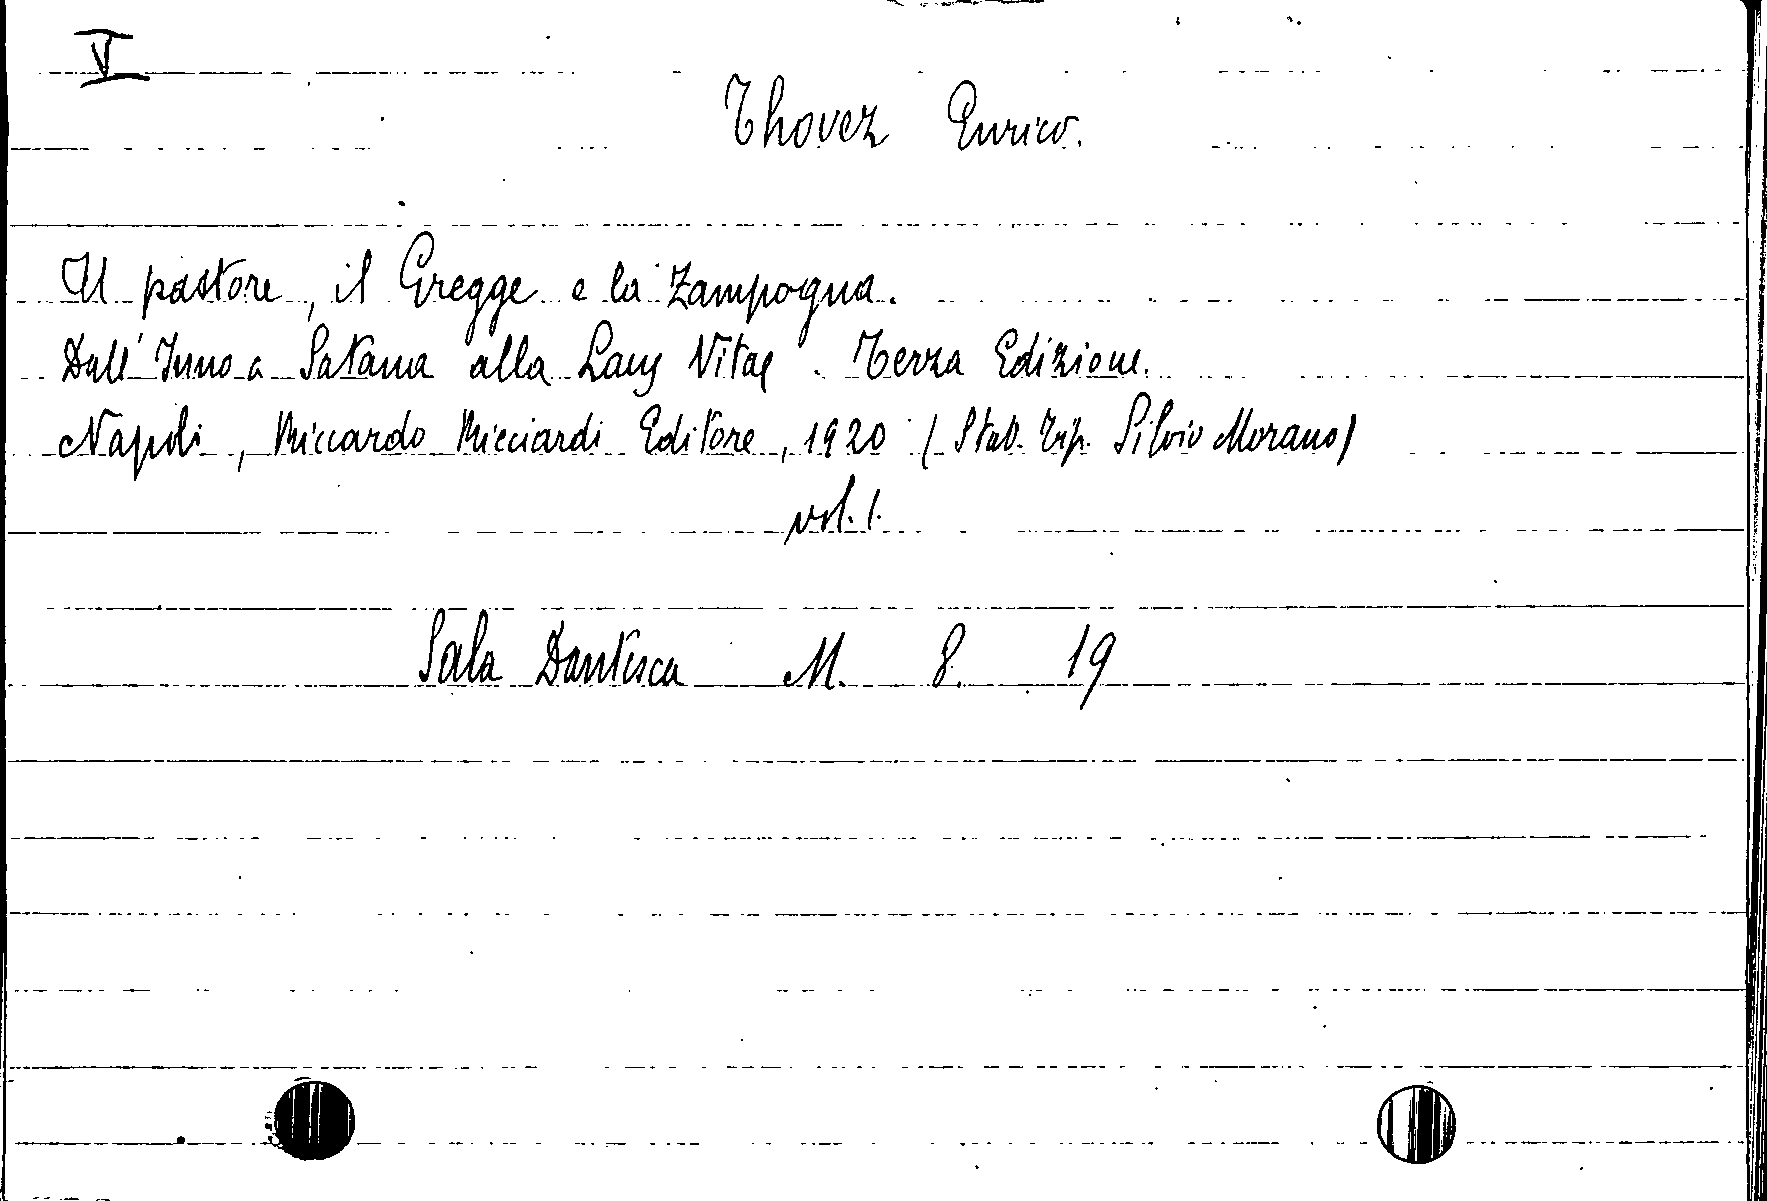 V
Thovez Enrico.
Il pastore, il Gregge e la Zampogna.
Dall'Inno a Satana alla Laus Vitae. Terza Edizione.
Napoli, Riccardo Ricciardi Editore, 1920 (Stab. Tip. Silvio Morano)
vol. 1.
Sala Dantesca M. 8. 19